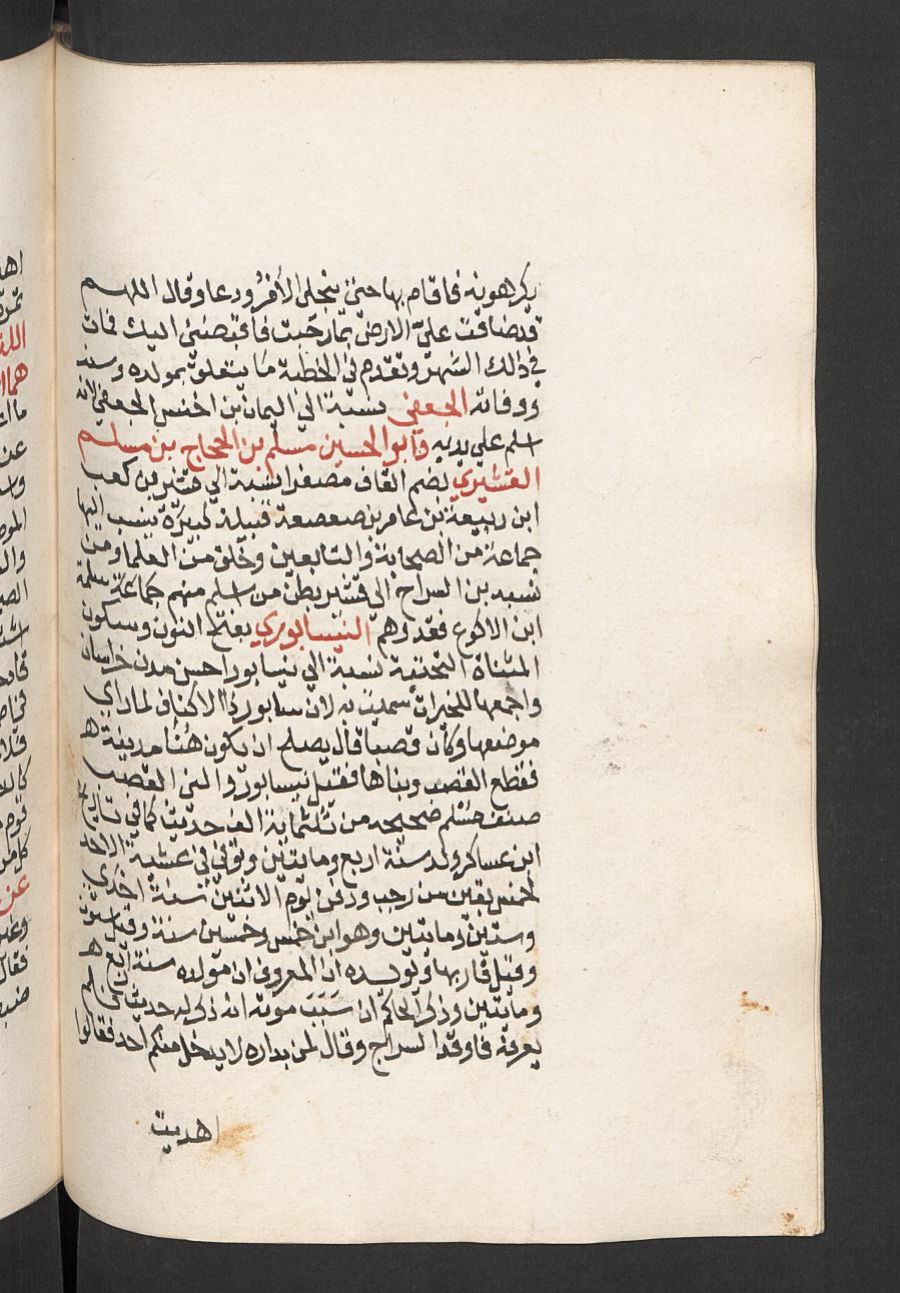 يكرهونه فاقام بها حتى ينجلي الامر ودعا وقال اللهم
قد ضاقت علي الارض بما رحبت فاقبضني اليك فمات
في ذلك الشهر وتقدم في الخطبة ما يتعلق بمولده وسنه
ووفاته الجعفي نسبة الي اليمان بن اخنس الجعفي لانه
اسلم علي يديه وابو الحسين مسلم بن الحجاج بن مسلم
القشيري بضم القاف مصغرا نسبة الي قشير بن كعب
ابن ربيعة بن عامر بن صعصعة قبيلة كبيرة ينسب اليها
جماعة من الصحابة والتابعين وخلق من العلما ومن
نسبه بن السراج الي قشير بطن من اسلم منهم جماعة سلمة
ابن الاكوع فقد وهم النيسابوري بفتح النون وسكون
المثناة التحتية نسبة الي نيسابور احسن مدن خراسان
واجمعها للخيرات سميت به لان سابور ذا الاكتاف لما راي
موضعها وكان قصبا قال يصلح ان يكون هنا مدينة
فقطع القصب وبناها فقيل نيسابور والني القصب
صنف مسلم صحيحه من ثلثماية الف حديث كما في تاريخ
ابن عساكر ولد سنة اربع ومايتين وتوفي في عشية الاحد
لخمس بقين من رجب ودفن يوم الاثنين سنة احدي
وستين ومايتين وهو ابن خمس وخمسين سنة وقيل ستون
وقيل قاربها ويويده ان المعروف ان مولده سنة اربع
ومايتين وذكر الحاكم ان سبب موته انه ذكر له حديث فلم
يعرفه فاوقد السراج وقال لمن بداره لا يدخل منكم احد فقالوا
اهديت